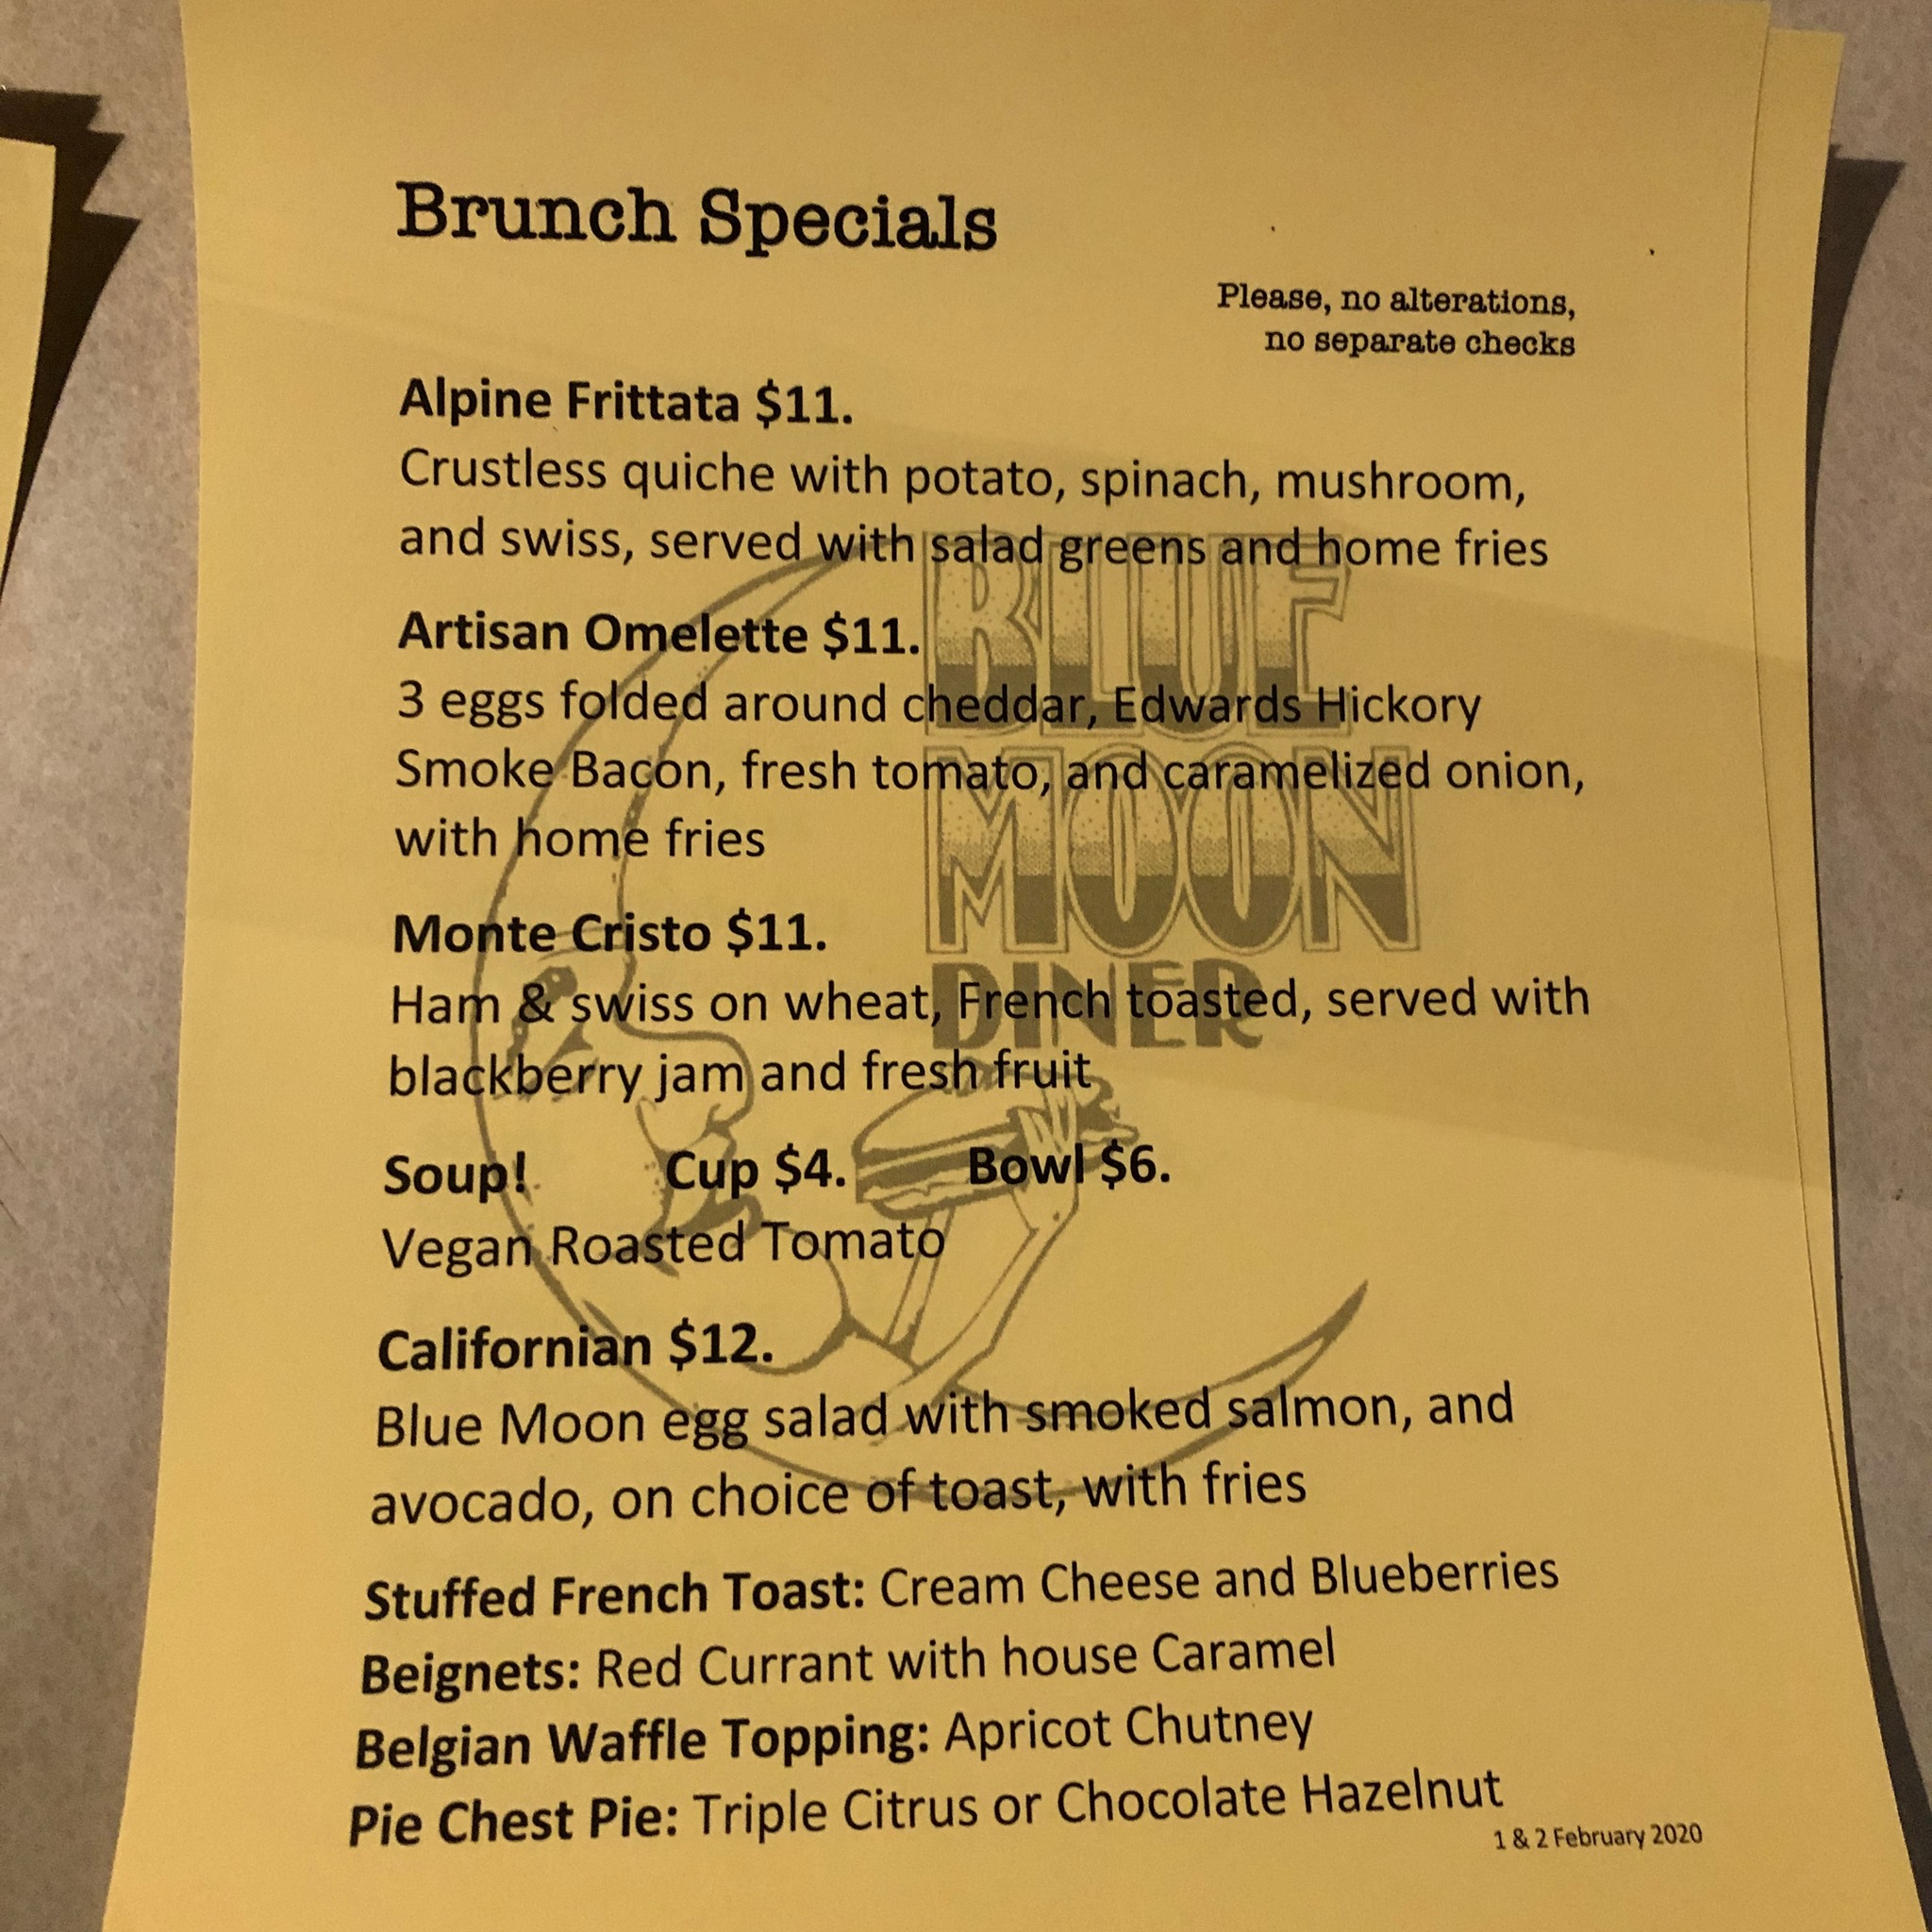 Brunch Specials
Please, no alterations,
no separate checks
Alpine Frittata $11.
Crustless quiche with potato, spinach, mushroom,
and swiss, served with salad greens and home fries
Artisan Omelette $11.
3 eggs folded around cheddar, Edwards Hickory
Smoke Bacon, fresh tomato, and caramelized onion,
with home fries
Monte Cristo $11.
Ham & swiss on wheat, French toasted, served with
blackberry jam and fresh fruit
Soup! Cup $4. Bowl $6.
Vegan Roasted Tomato
Californian $12.
Blue Moon egg salad with smoked salmon, and
avocado, on choice of toast, with fries
Stuffed French Toast: Cream Cheese and Blueberries
Beignets: Red Currant with house Caramel
Belgian Waffle Topping: Apricot Chutney
Pie Chest Pie: Triple Citrus or Chocolate Hazelnut
1 & 2 February 2020
BLUE
MOON
DINER